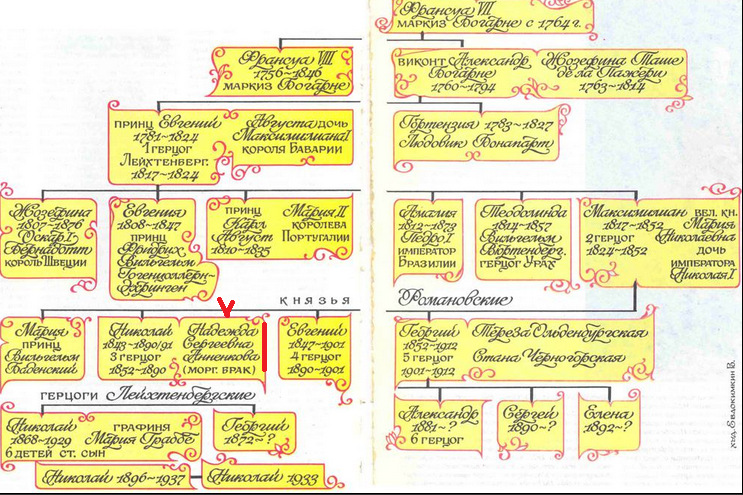 Франсуа VII
маркиз Богарне с 1764 г.
Франсуа VIII
1756~1846
маркиз Богарне
виконт Александр
Богарне
1760~1794
Жозефина Таше
де ла Пажери
1763~1814
принц Евгений
1781~1824
1 герцог
Лейхтенберг.
1817~1824
Августа дочь
Максимилиана I
короля Баварии
Гортензия 1783~1827
Людовик Бонапарт
Жозефина
1807~1876
Оскар I
Бернадотт
король Швеции
Евгения
1808~1847
принц
Фридрих
Вильгельм
Гогенцоллерн~
Эхинген
принц
Карл
Август
1810~1835
Мария II
королева
Португалии
Амалия
1812~1873
Педро I
император
Бразилии
Теодолинда
1814~1857
Вильгельм
Вюртемберг.
герцог Урах
Максимилиан
1817~1852
2 герцог
1824~1852
вел. кн.
Мария
Николаевна
дочь
императора
Николая I
князья Романовские
Мария
принц
Вильгельм
Баденский
Николай
1843~1890/91
3 герцог
1852~1890
Надежда
Сергеевна
Анненкова
(морг. брак)
Евгений
1847~1901
4 герцог
1890~1901
Георгий
1852~1912
5 герцог
1901~1912
Тереза Ольденбургская
Стана Черногорская
герцоги Лейхтенбергские
Николай
1868~1929
6 детей ст. сын
графиня
Мария Граббе
Георгий
1872~?
Александр
1881~?
6 герцог
Сергей
1890~?
Елена
1892~?
Николай 1896~1937
Николай 1933
худ. Евдокимкин В.